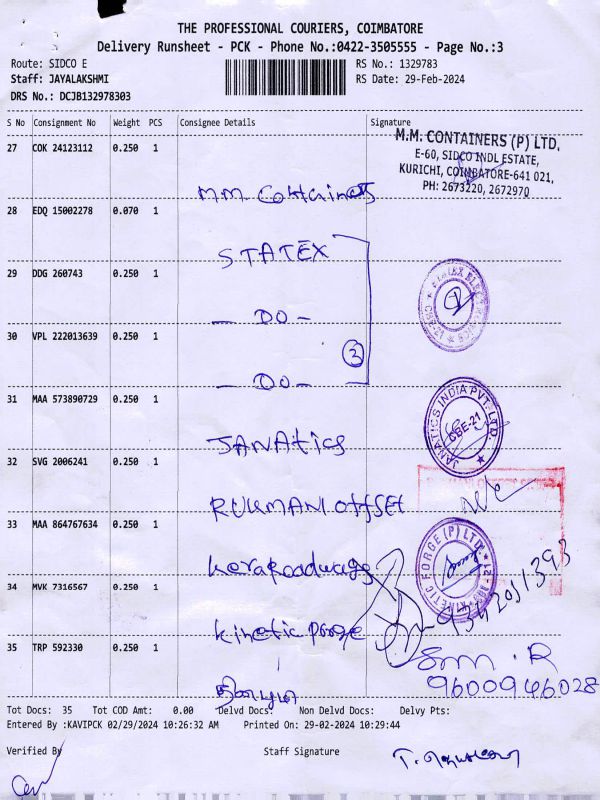 THE PROFESSIONAL COURIERS, COIMBATORE
Delivery Runsheet - PCK - Phone No.:0422-3505555 - Page No.:3
Route: SIDCO E RS No.: 1329783
Staff: JAYALAKSHMI RS Date: 29-Feb-2024
DRS No.: DCJB132978303
S No Consignment No Weight PCS Consignee Details Signature
M.M. CONTAINERS (P) LTD.
E-60, SIDCO INDL ESTATE,
KURICHI, COIMBATORE-641 021,
PH: 2673220, 2672970
27 COK 24123112 0.250 1
M.M. Containers
28 EDQ 15002278 0.070 1
STATEX
29 DDG 260743 0.250 1
- DO -
30 VPL 222013639 0.250 1
3
- DO -
31 MAA 573890729 0.250 1
JANATICS INDIA PVT. LTD.
CBE-21
JANAtics
32 SVG 2006241 0.250 1
RUKMANI OFFSET
33 MAA 864767634 0.250 1
KINETIC FORGE (P) LTD.
34 MVK 7316567 0.250 1
kinetic
35 TRP 592330 0.250 1
9600946028
Tot Docs: 35 Tot COD Amt: 0.00 Delvd Docs: Non Delvd Docs: Delvy Pts:
Entered By :KAVIPCK 02/29/2024 10:26:32 AM Printed On: 29-02-2024 10:29:44
Verified By Staff Signature